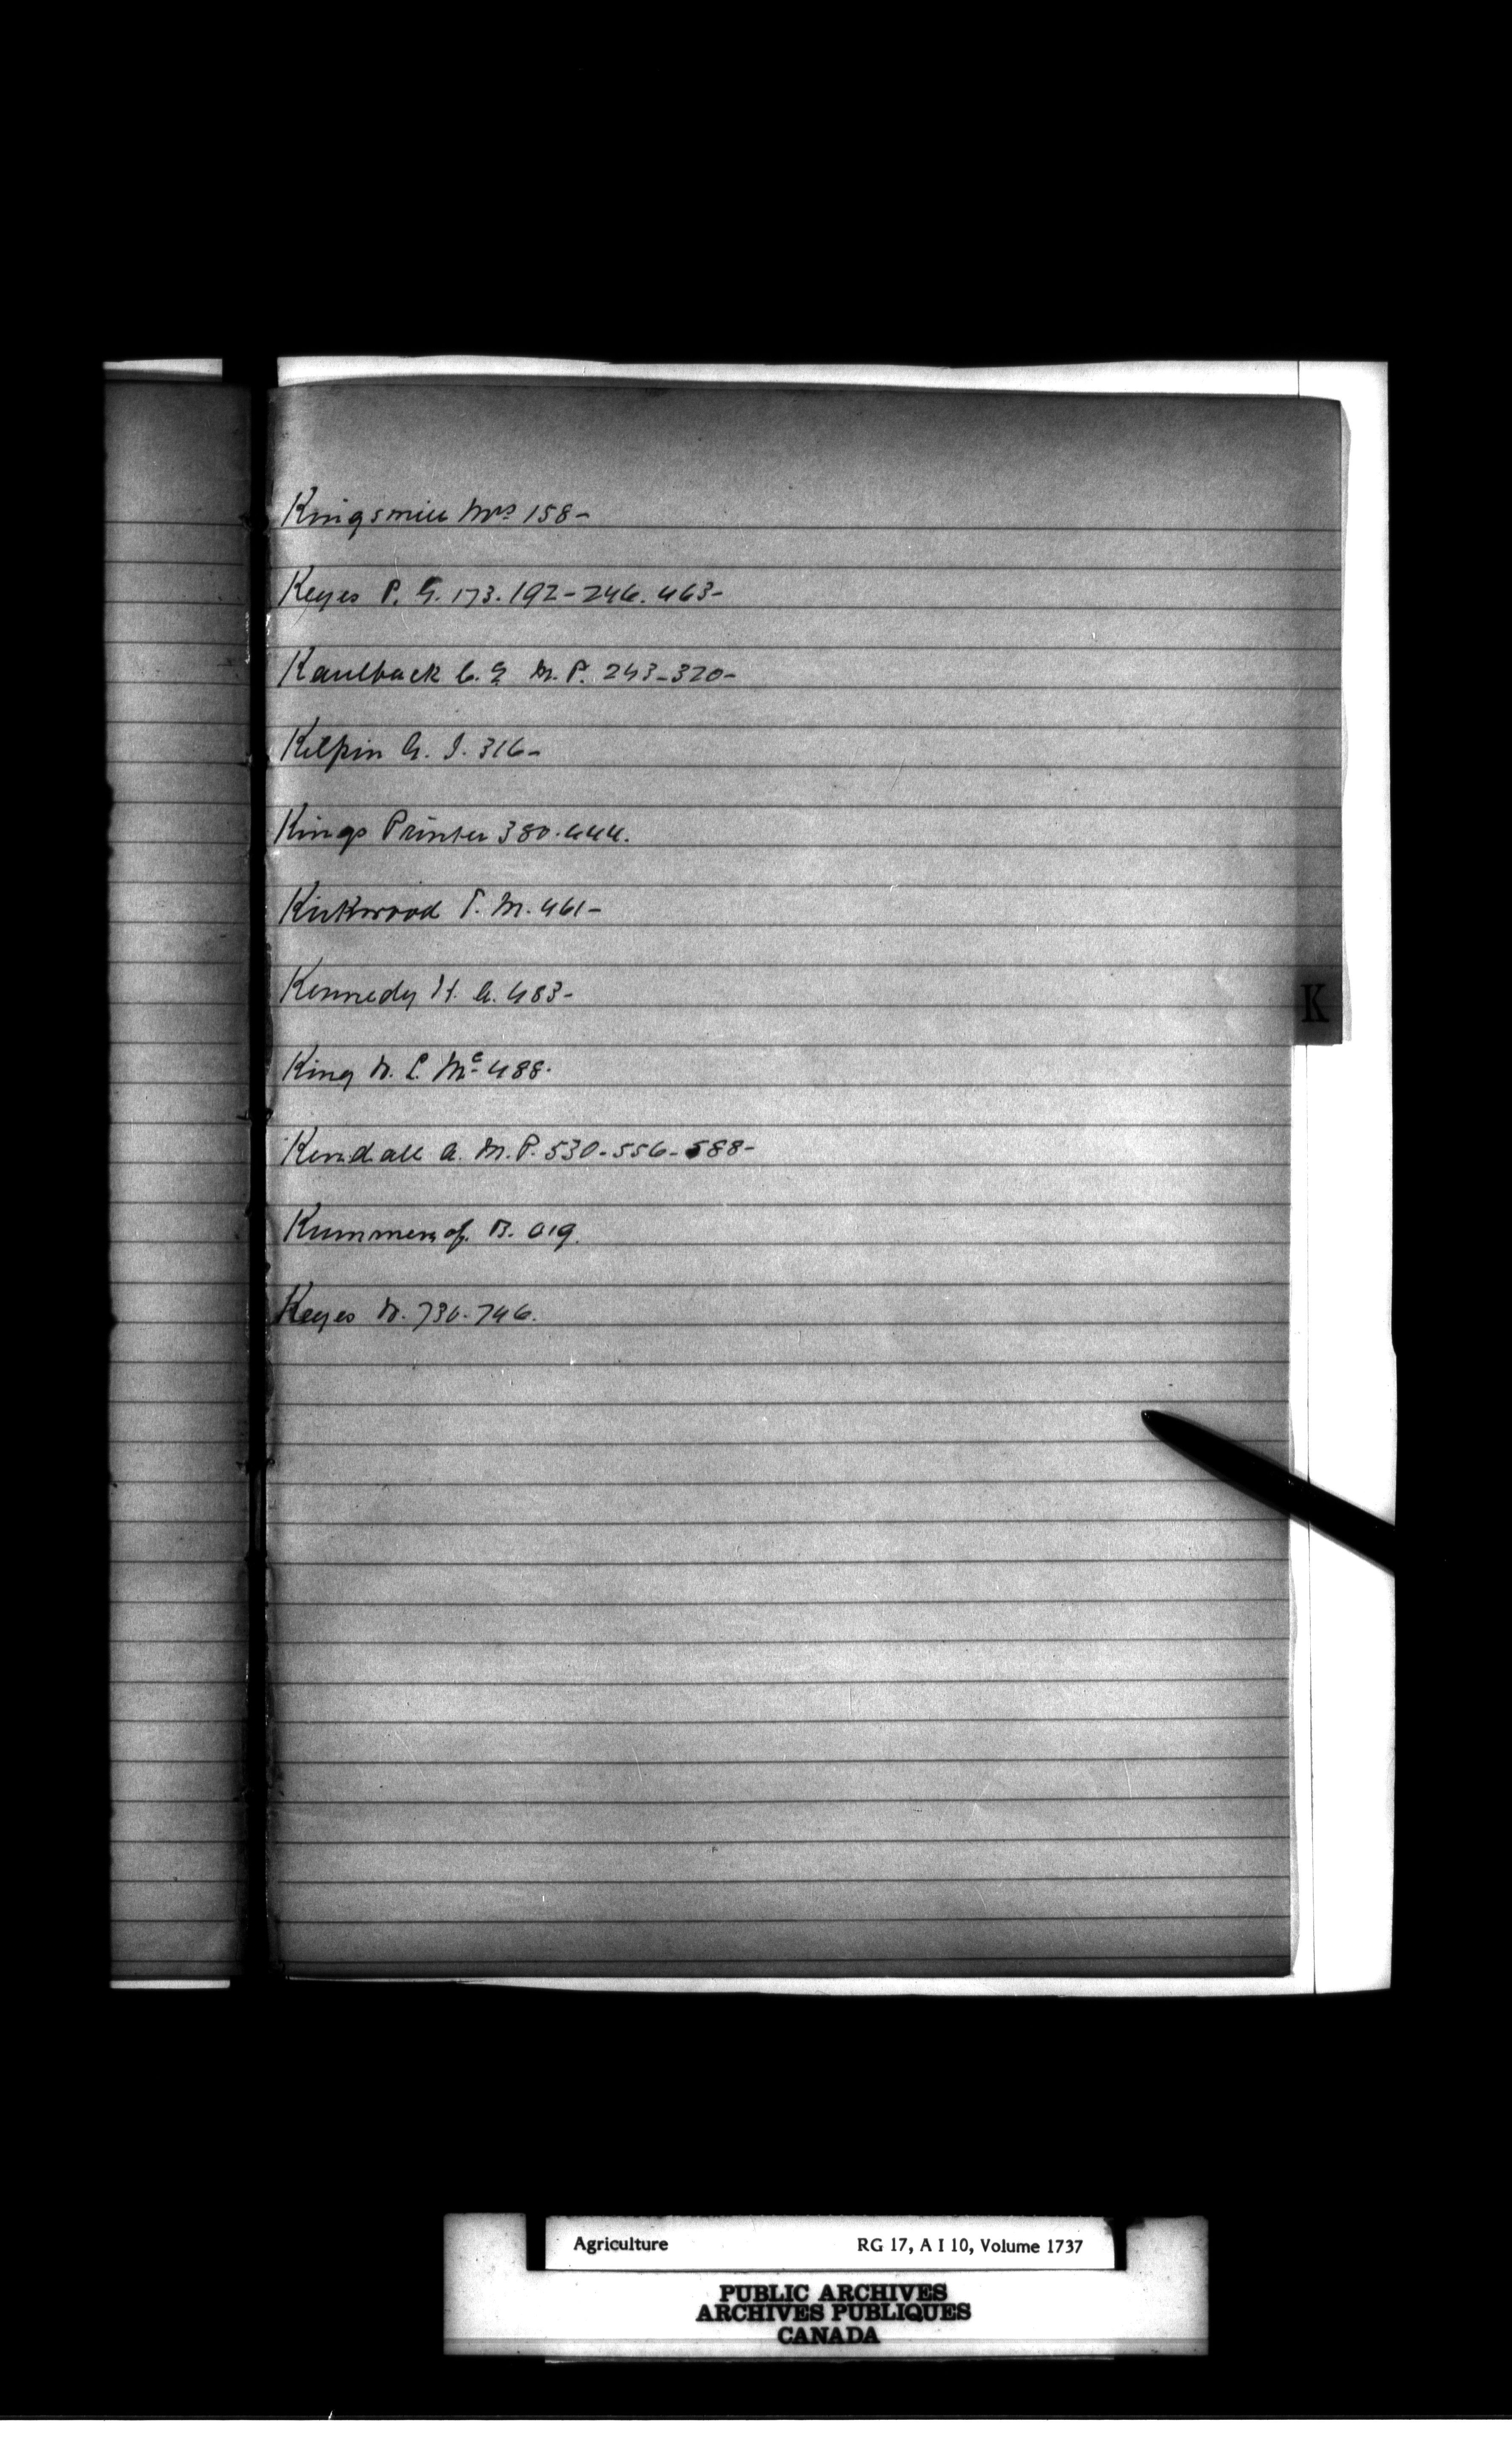 Kingsmill Mrs 158-
Keyes P. G. 173. 192-246. 463-
Kaulback C. E M. P. 243-320-
Kelpin A. J. 316-
Kings Printer 380. 444.
Kirkwood T. M. 461-
Kennedy H. A. 483-
K
King W. L. Mc 488.
Kendall A. M. P. 530-556-588-
B. 619.
Keyes W. 736-746.
Agriculture RG 17, A I 10, Volume 1737
PUBLIC ARCHIVES
ARCHIVES PUBLIQUES
CANADA